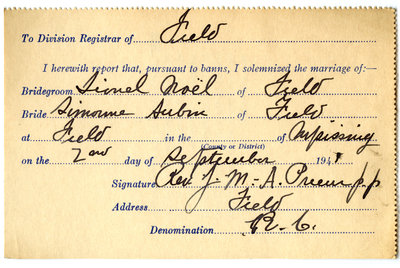 To Division Registrar of Field
I herewith report that, pursuant to banns, I solemnized the marriage of:—
Bridegroom Lionel Noël of Field
Bride Simonne Aubin of Field
at Field in the of Nipissing
(County or District)
on the 2nd day of September 194
Signature Rev J-M-A. p.p
Address Field
Denomination R.C.